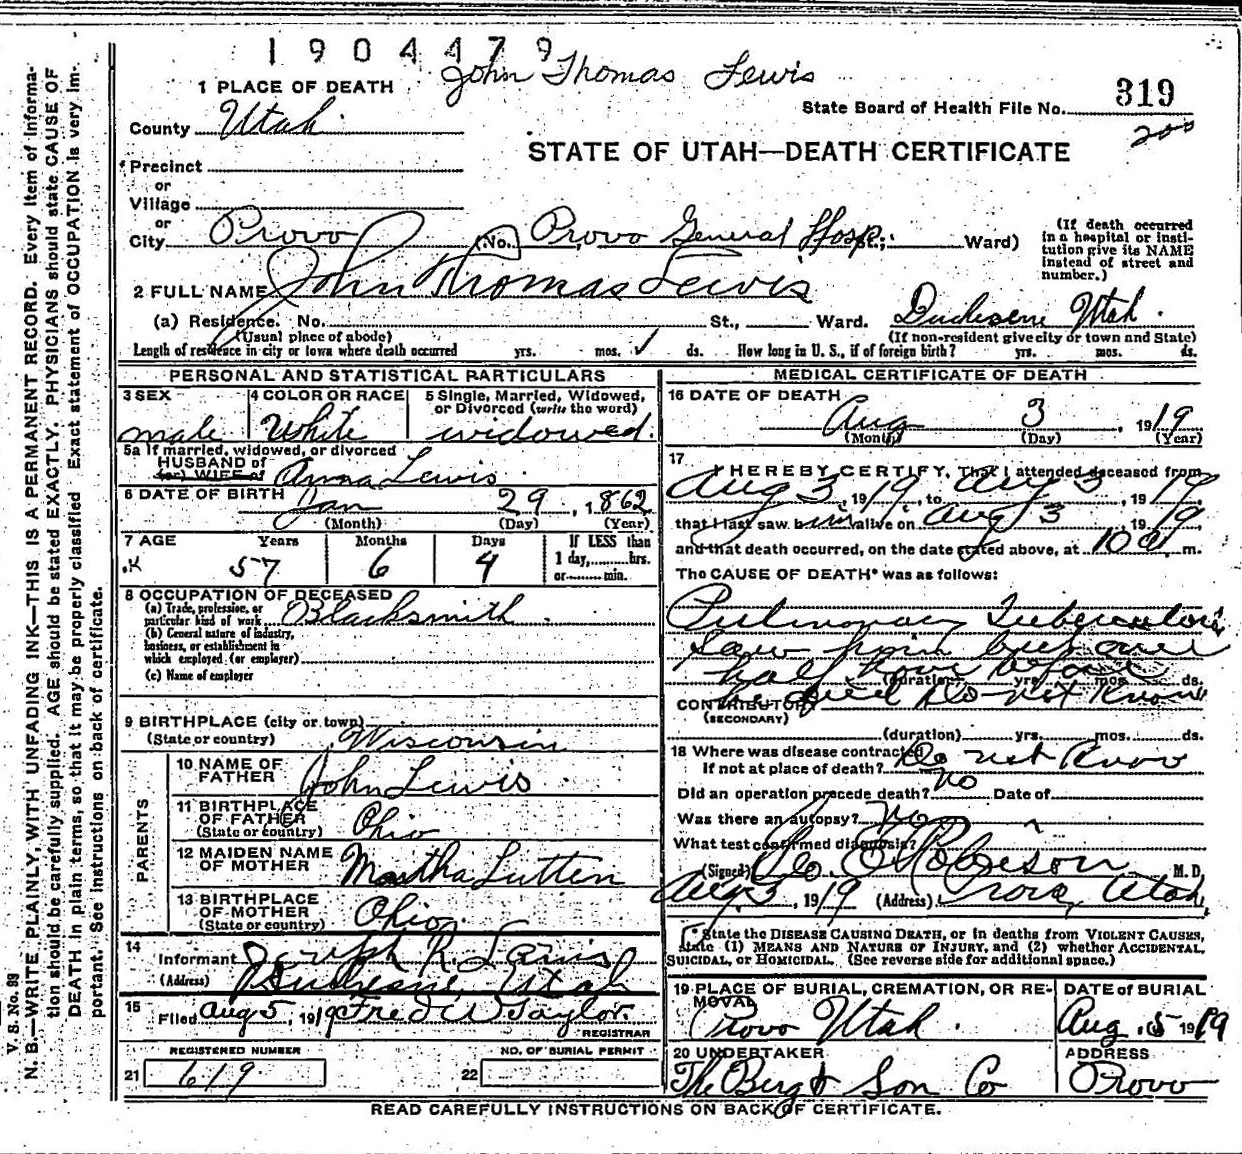 1904479
John Thomas Lewis
1 PLACE OF DEATH
State Board of Health File No. 319
200
County Utah
STATE OF UTAH—DEATH CERTIFICATE
Precinct
or
Village
or
City Provo (No. Provo General Hosp. St.; Ward)
(If death occurred in a hospital or institution give its NAME instead of street and number.)
2 FULL NAME John Thomas Lewis
(a) Residence. No. St., Ward. Duchesne Utah.
(Usual place of abode) (If non-resident give city or town and State)
Length of residence in city or town where death occurred yrs. mos. ✓ ds. How long in U. S., if of foreign birth? yrs. mos. ds.
PERSONAL AND STATISTICAL PARTICULARS
3 SEX male
4 COLOR OR RACE White
5 Single, Married, Widowed, or Divorced (write the word) widowed.
5a If married, widowed, or divorced
HUSBAND of
(or) WIFE of Anna Lewis
6 DATE OF BIRTH Jan 29, 1862
(Month) (Day) (Year)
7 AGE Years Months Days If LESS than
57 6 4 1 day, hrs.
or min.
8 OCCUPATION OF DECEASED
(a) Trade, profession, or particular kind of work Blacksmith
(b) General nature of industry, business, or establishment in which employed (or employer)
(c) Name of employer
9 BIRTHPLACE (city or town)
(State or country) Wisconsin
PARENTS
10 NAME OF FATHER John Lewis
11 BIRTHPLACE OF FATHER (State or country) Ohio
12 MAIDEN NAME OF MOTHER Martha Lutten
13 BIRTHPLACE OF MOTHER (State or country) Ohio
14 Informant Joseph R. Lewis
(Address) Duchesne, Utah
15 Filed Aug 5, 1919 Fred W Taylor.
REGISTRAR
REGISTERED NUMBER
21 619
NO. OF BURIAL PERMIT
22
MEDICAL CERTIFICATE OF DEATH
16 DATE OF DEATH
Aug 3, 1919
(Month) (Day) (Year)
17 I HEREBY CERTIFY, That I attended deceased from
Aug 3, 1919, to Aug 3, 1919
that I last saw him alive on Aug 3 1919
and that death occurred, on the date stated above, at 10 a m.
The CAUSE OF DEATH* was as follows:
Pulmonary Tuberculosis
Saw him but one
half hour before
(duration) yrs. mos. ds.
he died Do not Know
CONTRIBUTORY
(SECONDARY)
(duration) yrs. mos. ds.
18 Where was disease contracted
If not at place of death? Do not Know
Did an operation precede death? no Date of
Was there an autopsy? No
What test confirmed diagnosis?
(Signed) Robison M. D.
Aug 3, 1919 (Address) Provo, Utah,
*State the DISEASE CAUSING DEATH, or in deaths from VIOLENT CAUSES,
state (1) MEANS AND NATURE OF INJURY, and (2) whether ACCIDENTAL,
SUICIDAL, or HOMICIDAL. (See reverse side for additional space.)
19 PLACE OF BURIAL, CREMATION, OR REMOVAL
Provo Utah.
DATE of BURIAL
Aug. 5 1919
20 UNDERTAKER
The Berg & Son Co
ADDRESS
Provo
READ CAREFULLY INSTRUCTIONS ON BACK OF CERTIFICATE.
V. S. No. 99
N. B.—WRITE PLAINLY, WITH UNFADING INK—THIS IS A PERMANENT RECORD. Every item of information should be carefully supplied. AGE should be stated EXACTLY. PHYSICIANS should state CAUSE OF DEATH in plain terms, so that it may be properly classified. Exact statement of OCCUPATION is very important. See instructions on back of certificate.